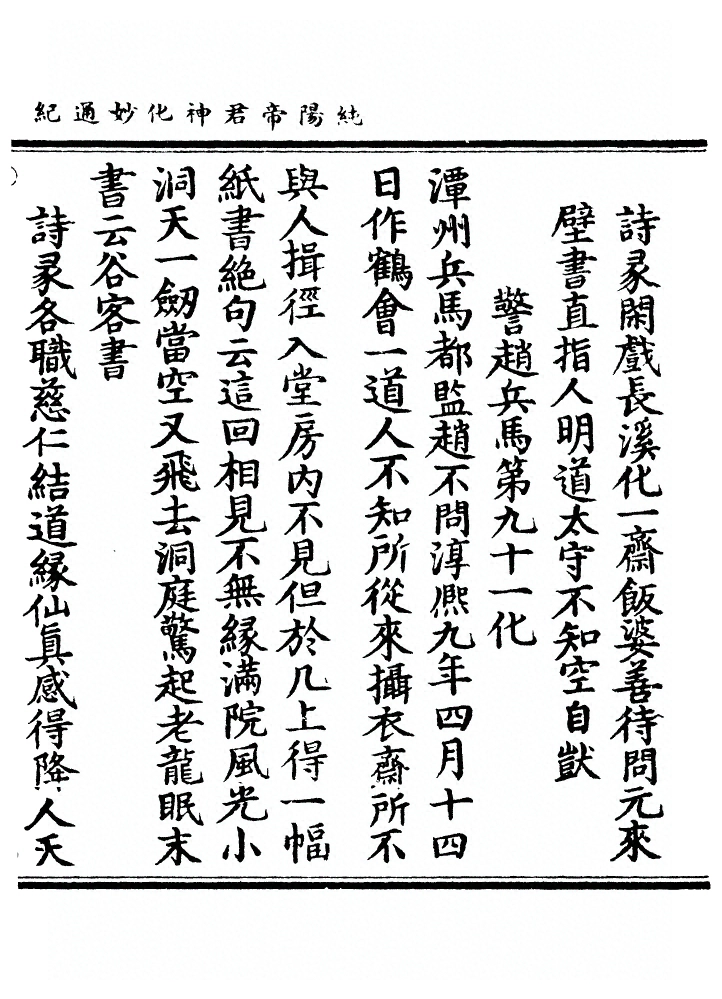 純陽帝君神化妙通紀
詩彖閑戲長溪化一齋飯婆善待問元來
壁書直指人明道太守不知空自獃
警趙兵馬第九十一化
潭州兵馬都監趙不問淳熈九年四月十四
日作鶴會一道人不知所從來攝衣齋所不
與人揖徑入堂房內不見但於几上得一幅
紙書絕句云這回相見不無緣滿院風光小
洞天一劒當空又飛去洞庭驚起老龍眠末
書云谷客書
詩彖各職慈仁結道緣仙眞感得降人天